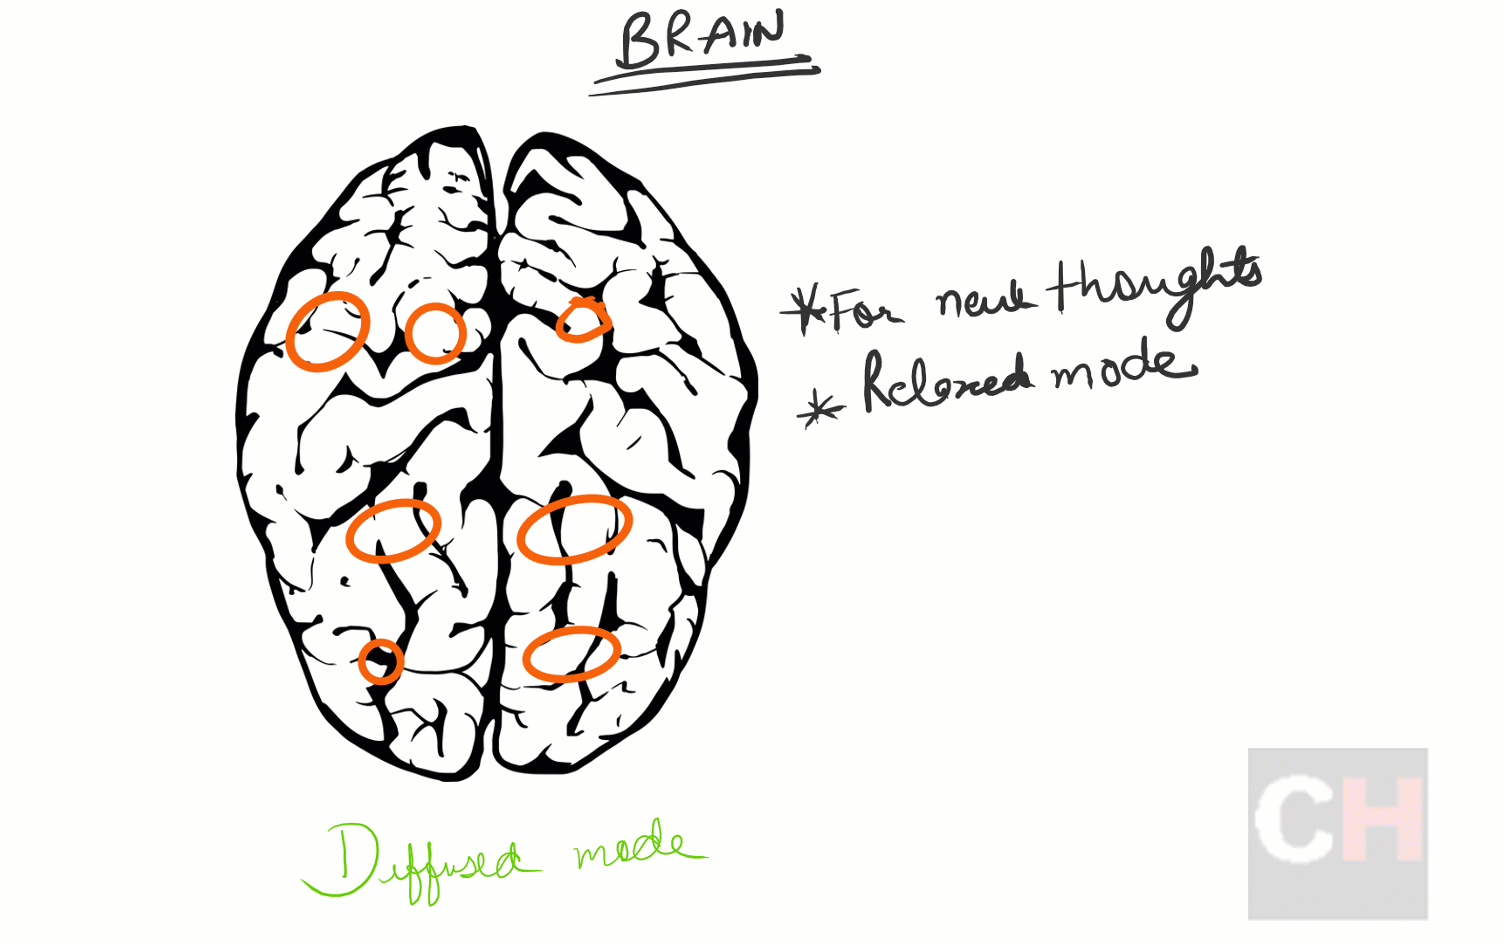 BRAIN
* For new thoughts
* Relaxed mode
Diffused mode
CH